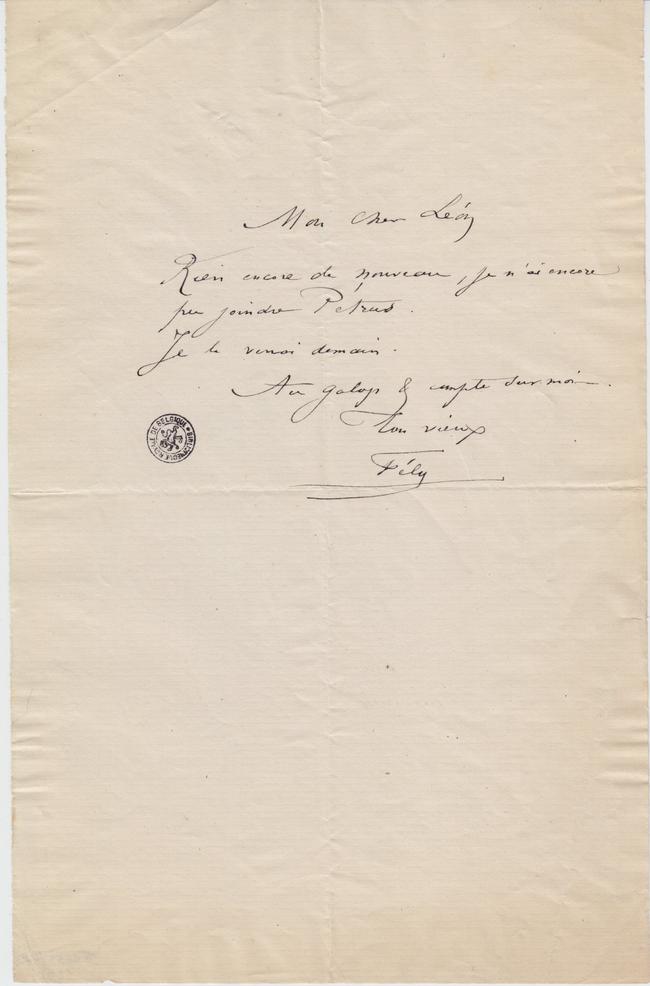 Mon cher Léon
Rien encore de nouveau, je n'ai encore
pu joindre Pétrus.
Je le verrai demain.
Au galop & compte sur moi.
Ton vieux
Fély
BIBLIOTHEQUE ROYALE DE BELGIQUE